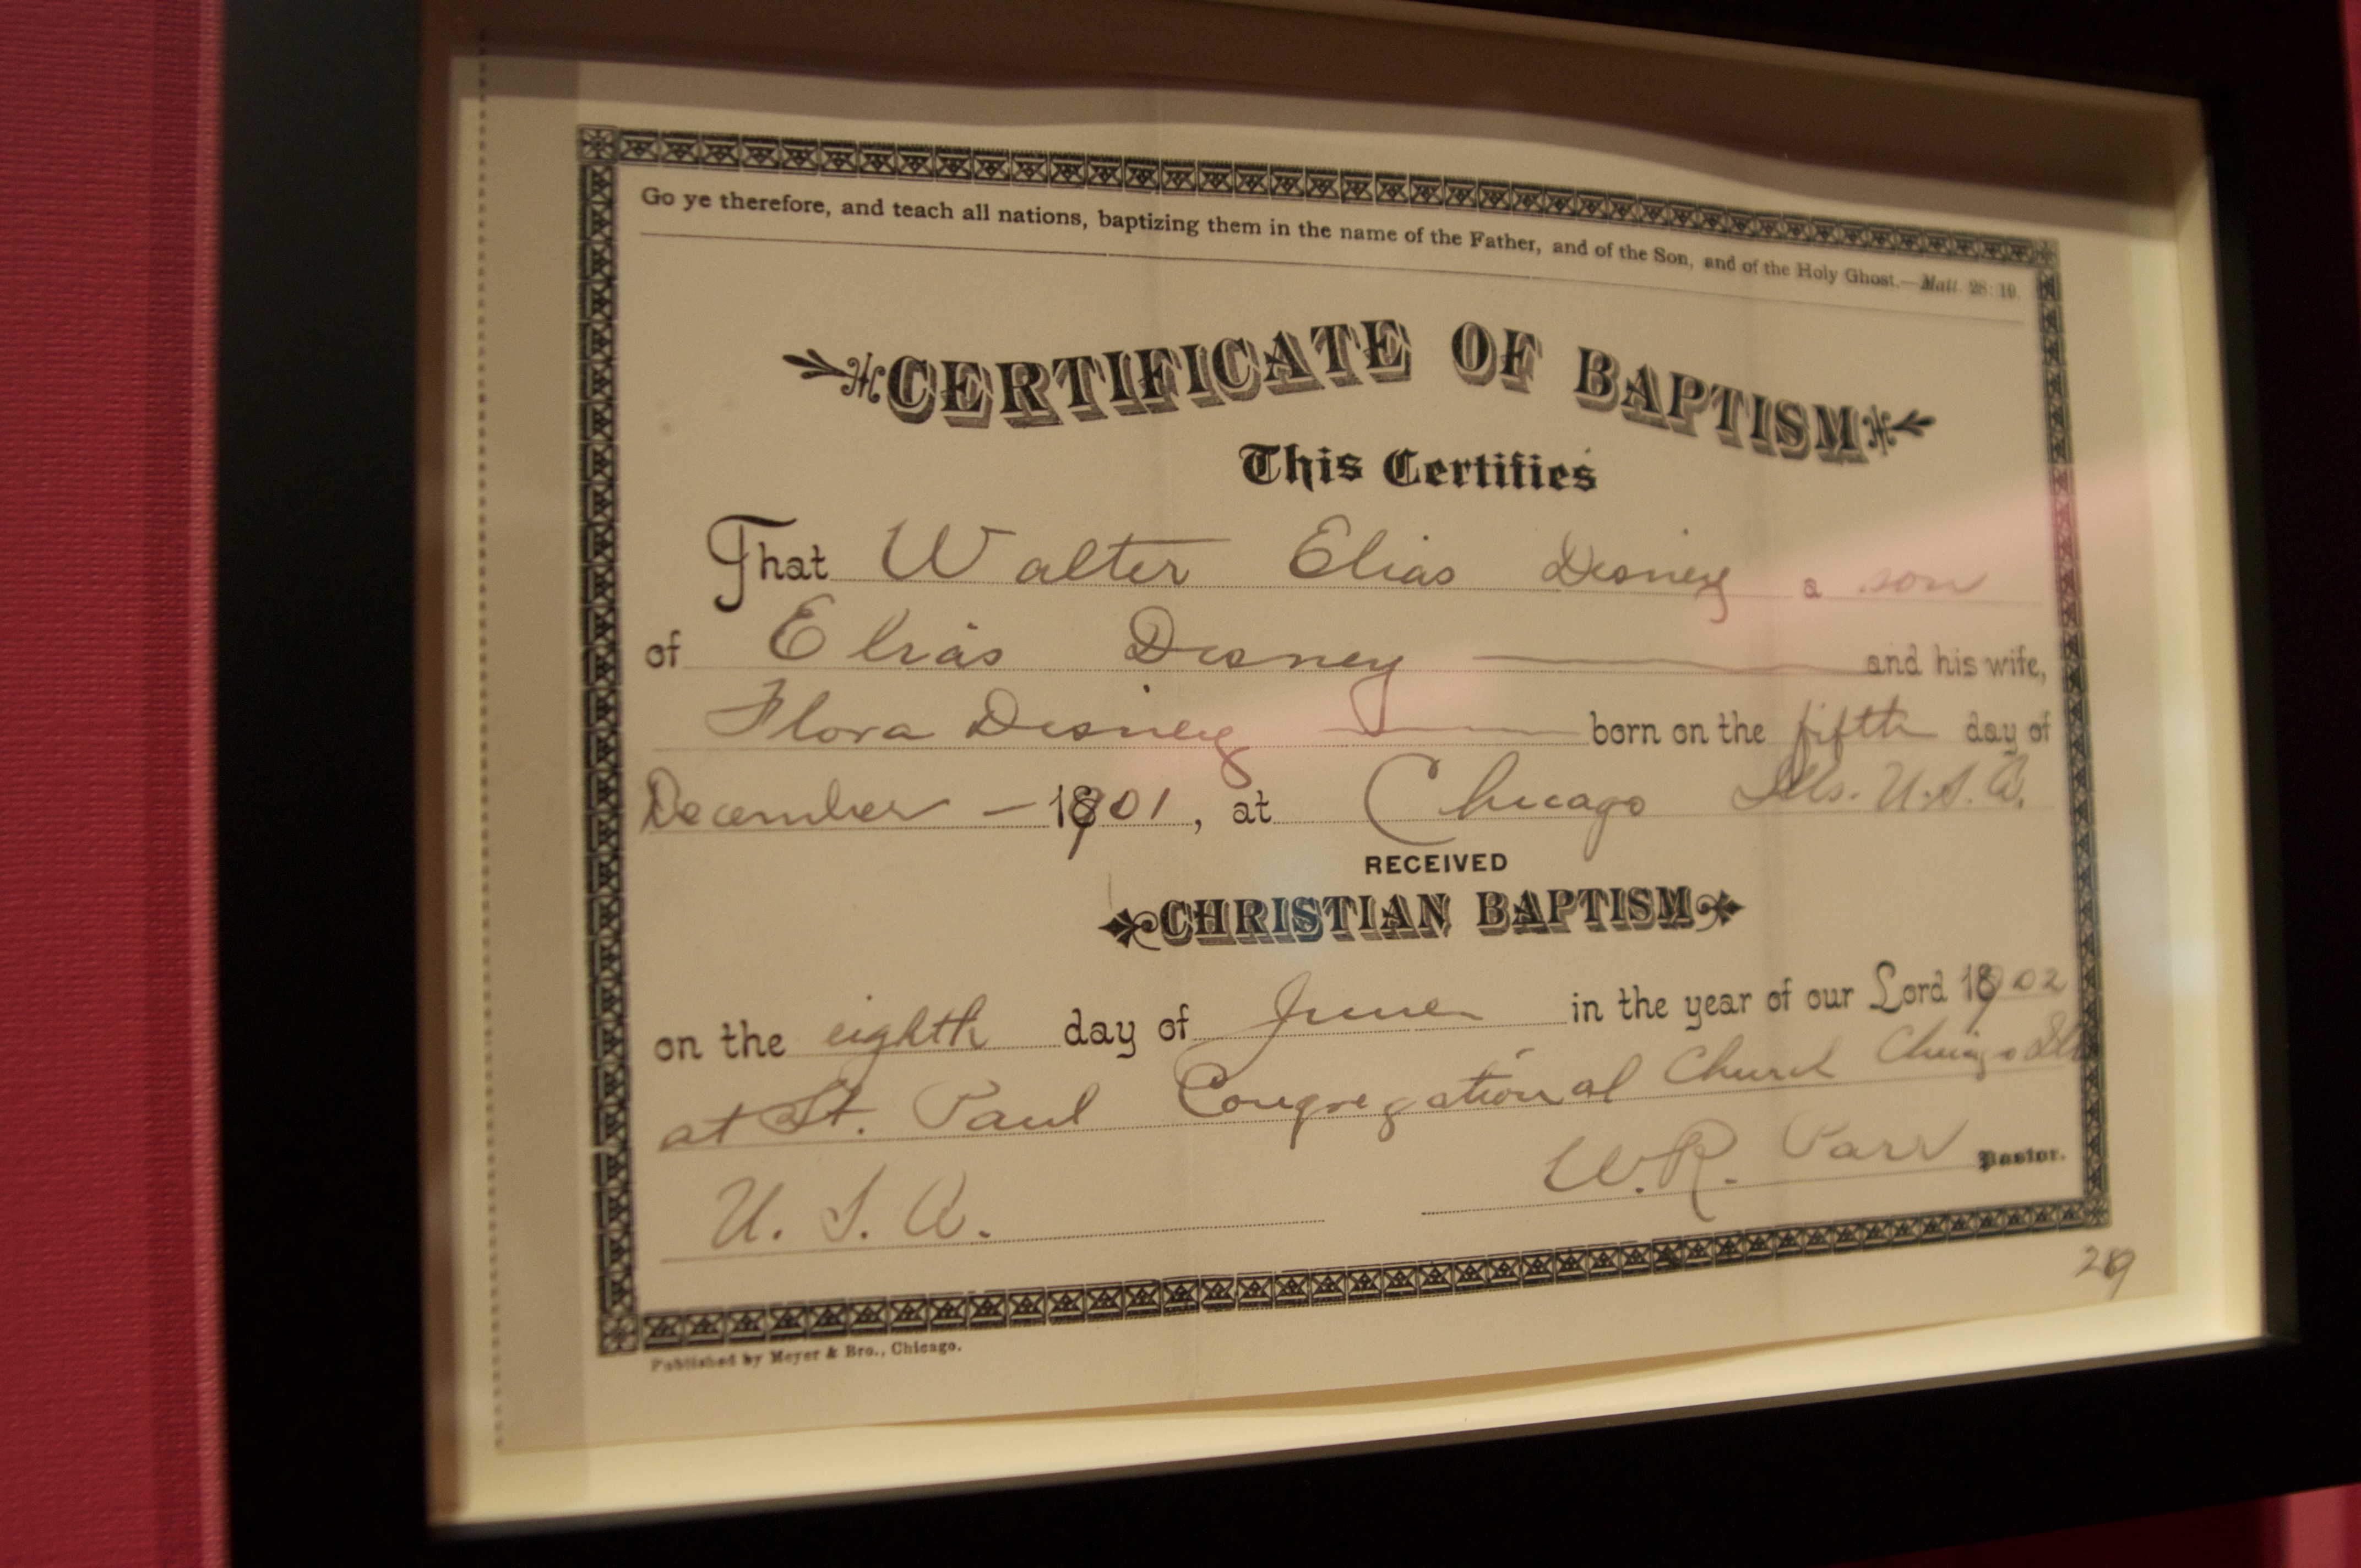 Go ye therefore, and teach all nations, baptizing them in the name of the Father, and of the Son, and of the Holy Ghost.—Matt. 28:19.
CERTIFICATE OF BAPTISM
This Certifies
That Walter Elias Disney a son
of Elias Disney and his wife,
Flora Disney born on the fifth day of
December — 1901, at Chicago Ills. U.S.A.
RECEIVED
CHRISTIAN BAPTISM
on the eighth day of June in the year of our Lord 1902
at St. Paul Congregational Church Chicago Ills
U. S. A. W. R. Parr Pastor.
Published by Meyer & Bro., Chicago.